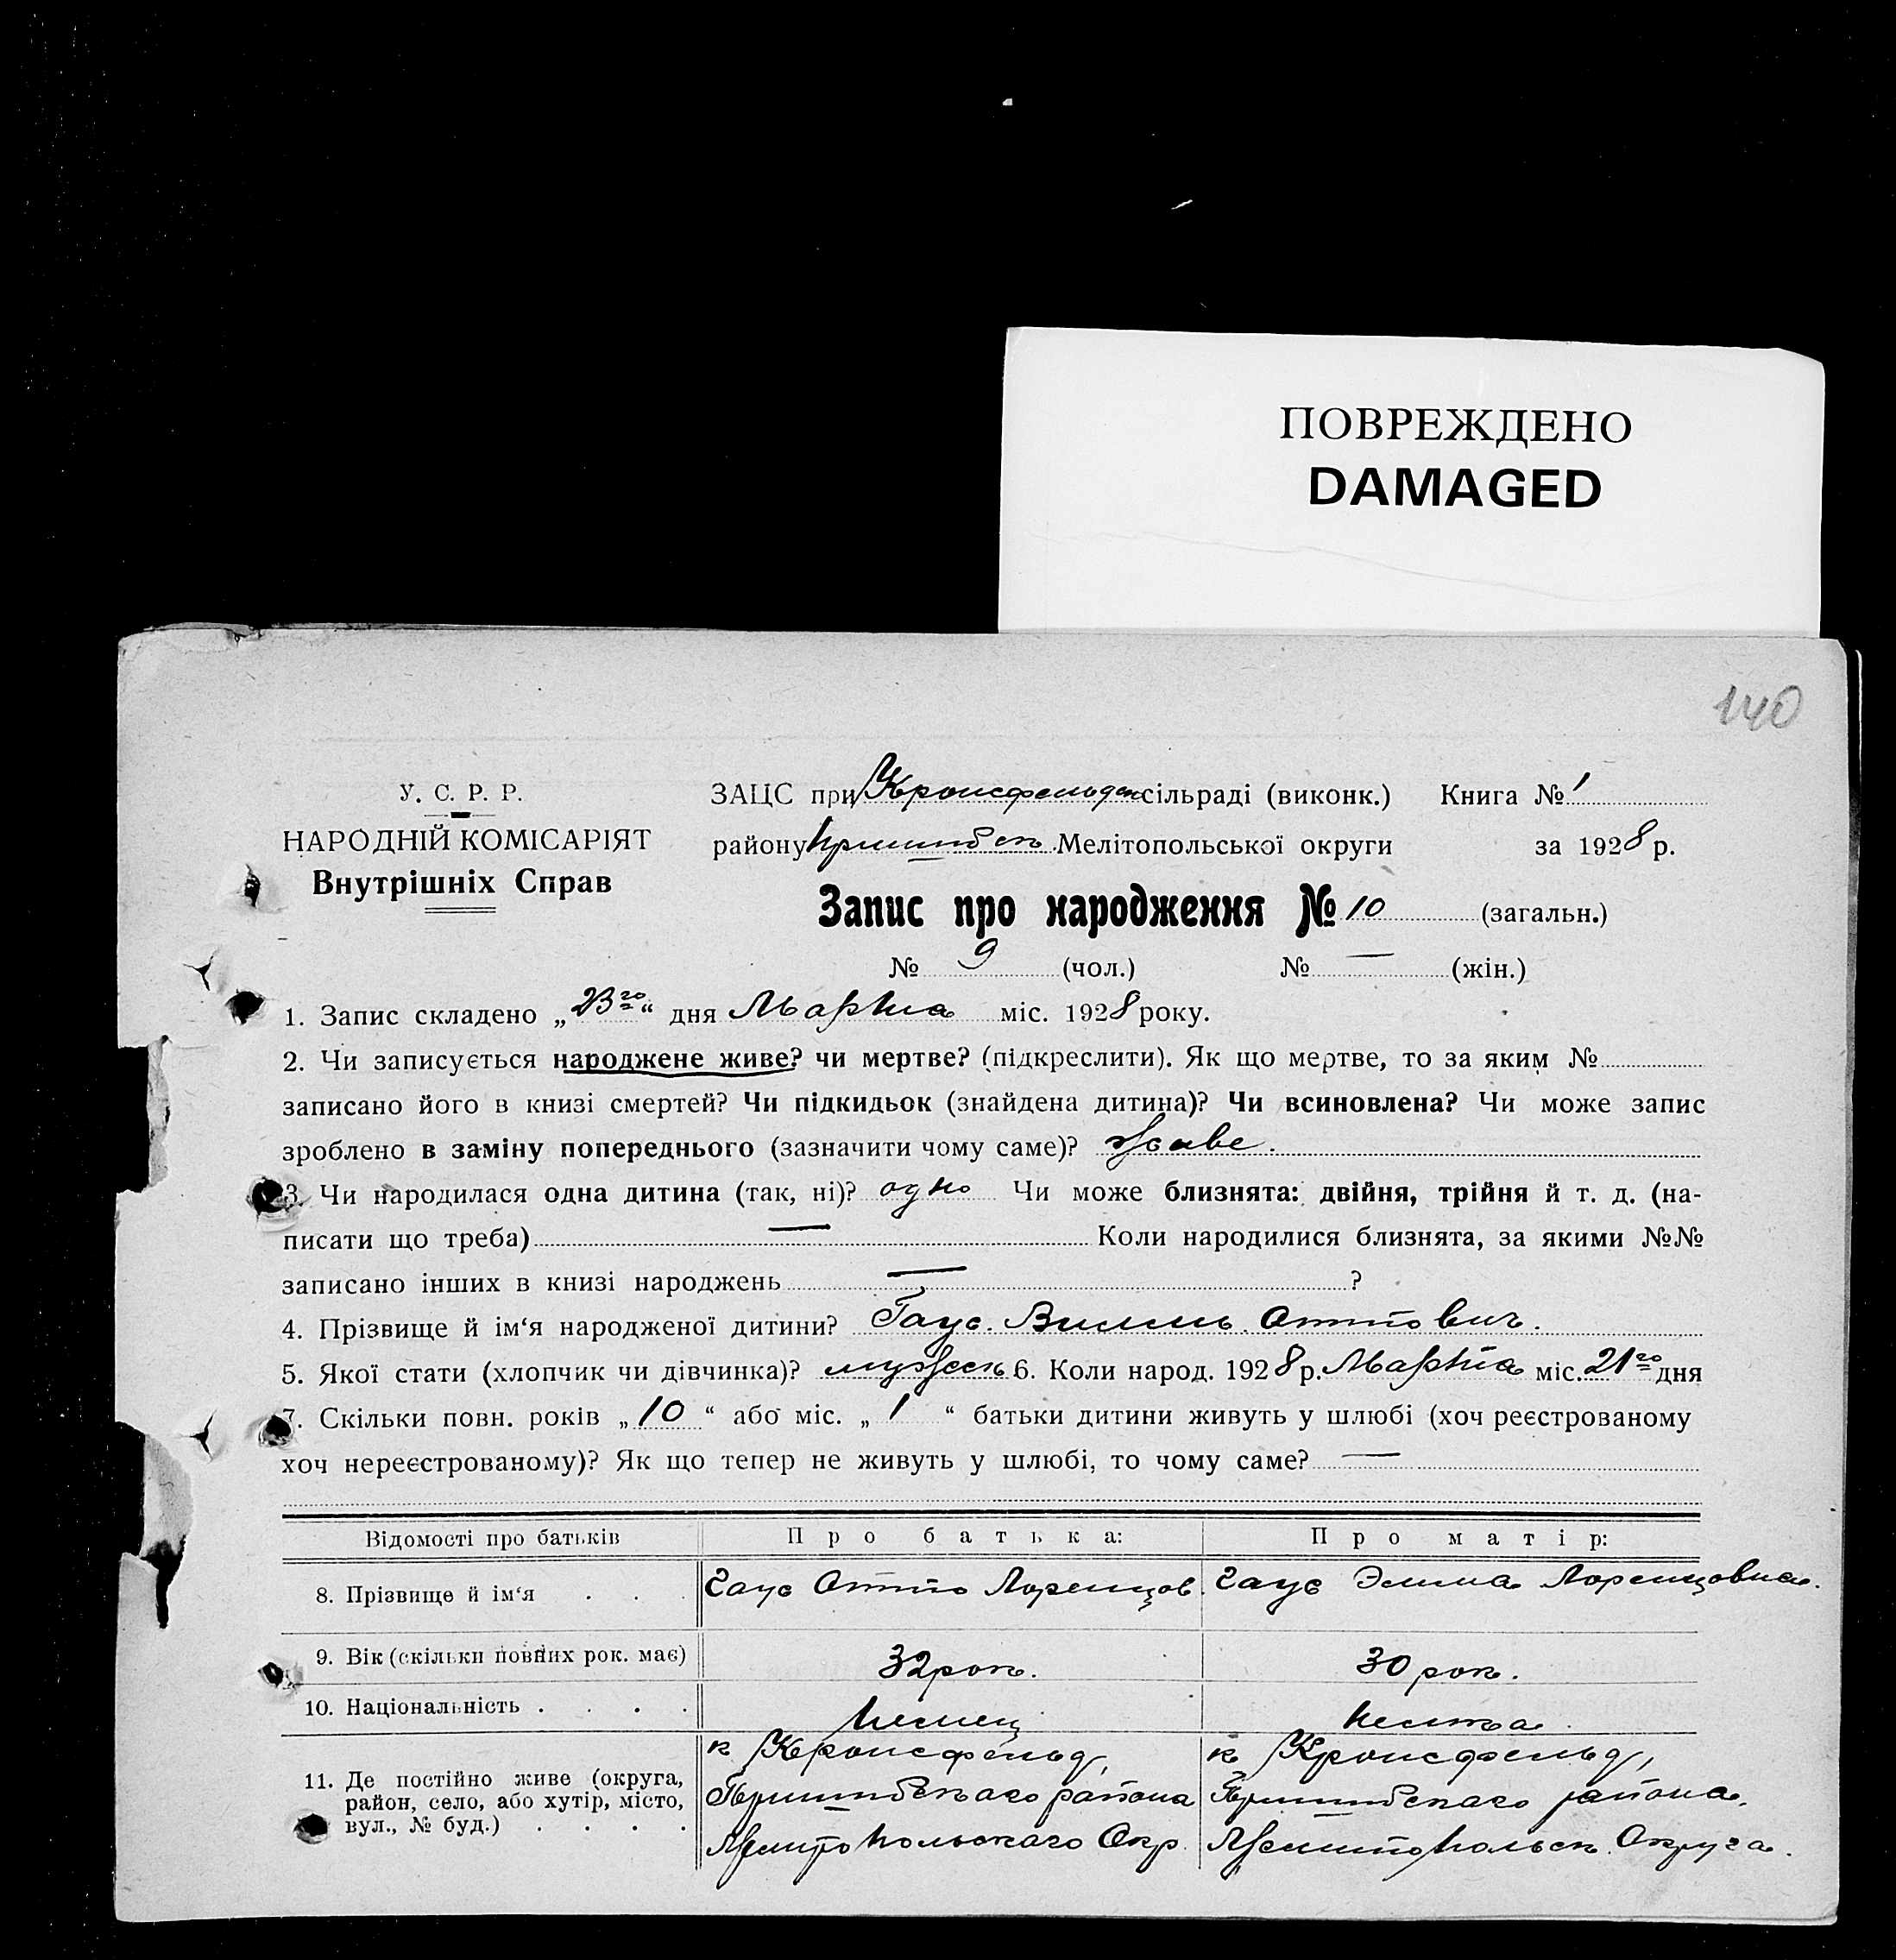 ПОВРЕЖДЕНО
DAMAGED
140
У. С. Р. Р.
НАРОДНІЙ КОМІСАРІЯТ
Внутрішніх Справ
ЗАЦС при Кронсфельдск сільраді (виконк.) Книга № 1
району Пришибск. Мелітопольської округи за 1928 р.
Запис про народження № 10 (загальн.)
№ 9 (чол.) № — (жін.)
1. Запис складено „23го“ дня Марта міс. 1928 року.
2. Чи записується народжене живе? чи мертве? (підкреслити). Як що мертве, то за яким №
записано його в книзі смертей? Чи підкидьок (знайдена дитина)? Чи всиновлена? Чи може запис
зроблено в заміну попереднього (зазначити чому саме)? живе.
3. Чи народилася одна дитина (так, ні)? одно Чи може близнята: двійня, трійня й т. д. (на-
писати що треба) — Коли народилися близнята, за якими №№
записано інших в книзі народжень — ?
4. Прізвище й ім‘я народженої дитини? Гаус. Вилль. Оттович.
5. Якої стати (хлопчик чи дівчинка)? мужеск 6. Коли народ. 1928 р. Марта міс. 21го дня
7. Скільки повн. років „10“ або міс. „1“ батьки дитини живуть у шлюбі (хоч реєстрованому
хоч нереєстрованому)? Як що тепер не живуть у шлюбі, то чому саме? —
Відомості про батьків Про батька: Про матір:
8. Прізвище й ім‘я . . . Гаус Отто Лоренцов. Гаус Эмма Лоренцовна.
9. Вік (скільки повних рок. має) 32 рок. 30 рок.
10. Національність . . . . Немец Немка.
к Кронсфельд, к Кронсфельд,
11. Де постійно живе (округа,
район, село, або хутір, місто, Пришибскаго района Пришибскаго района.
вул., № буд.) . . . . Мелитопольскаго Окр. Мелитопольск. Округа.